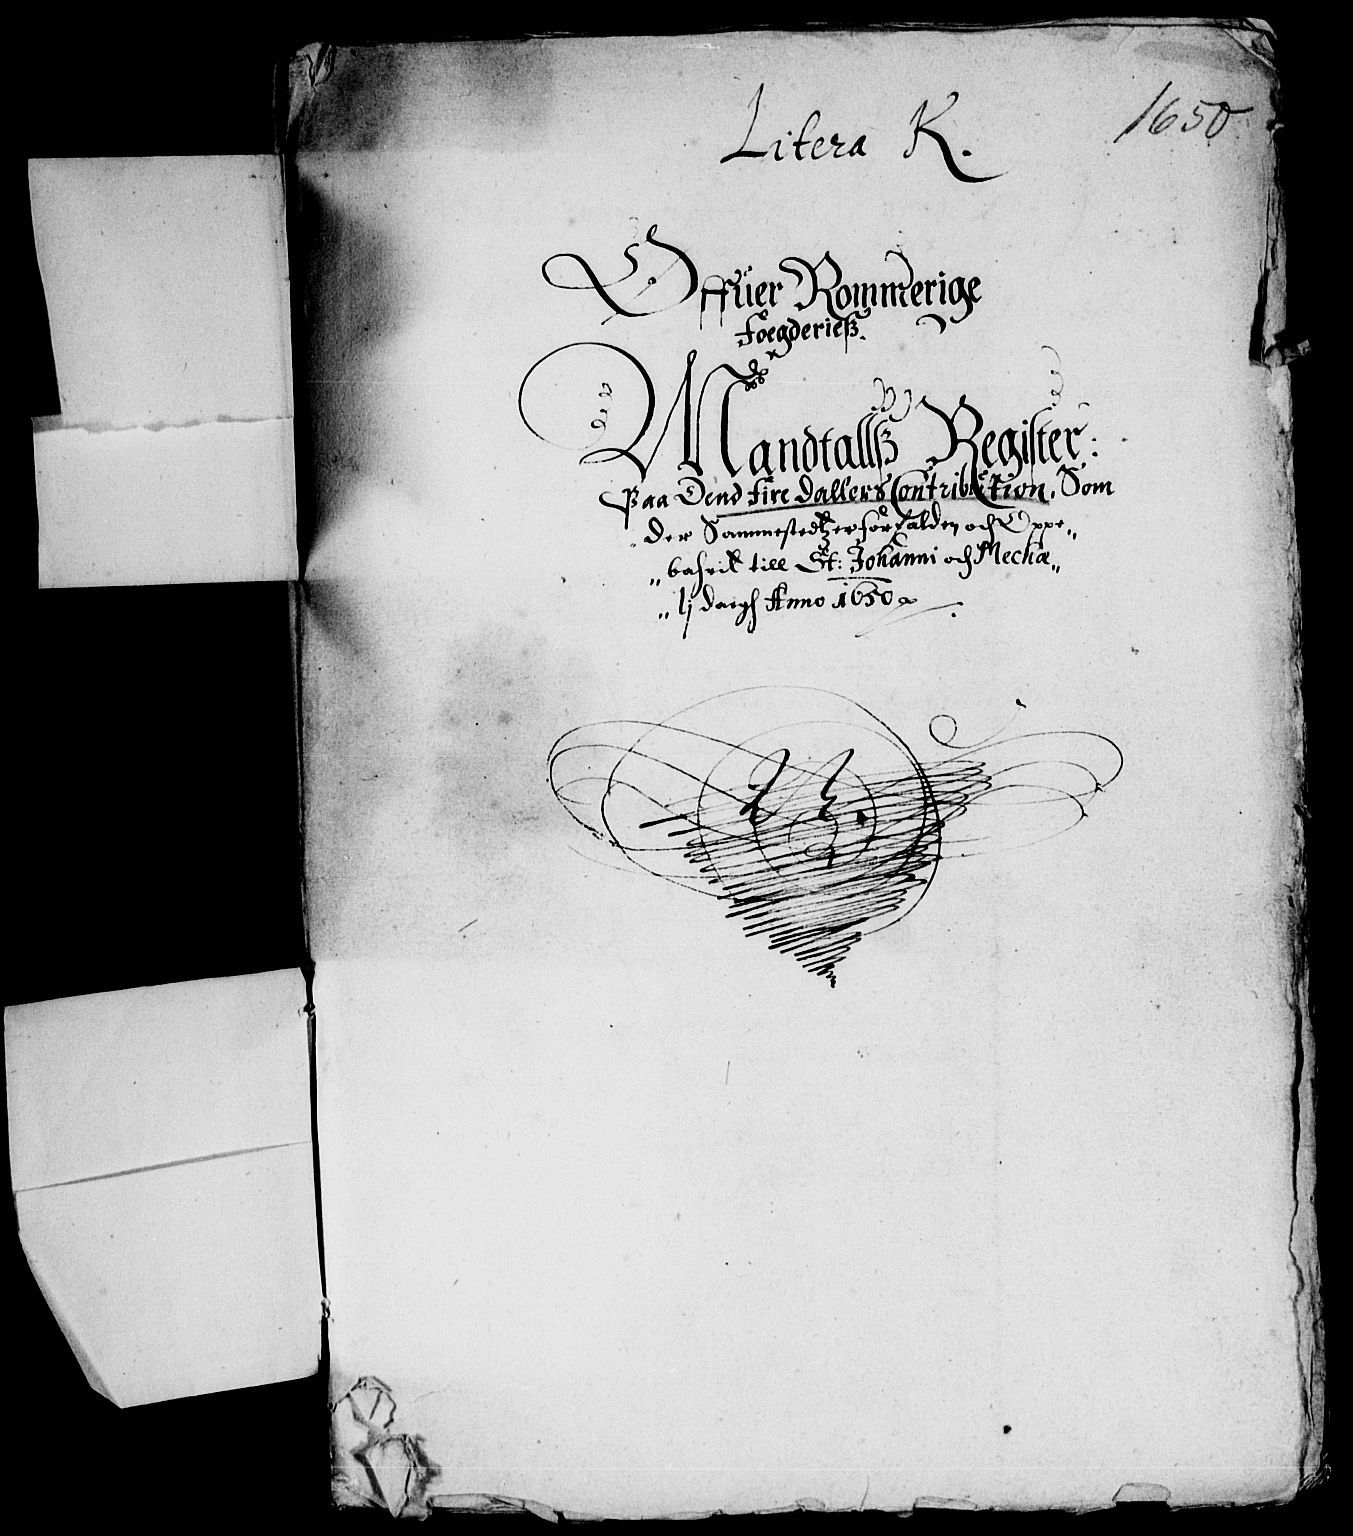 Litera K. 1650
Offuer Rommerige
foegderieß.
Mandtallß Register:
Paa Dend fire dallers Contribution, Som
der Sammestedtz er forfalden och Oppe„
„bahrit till St: Johanni och Mechæ„
„lj daegh Anno 1650